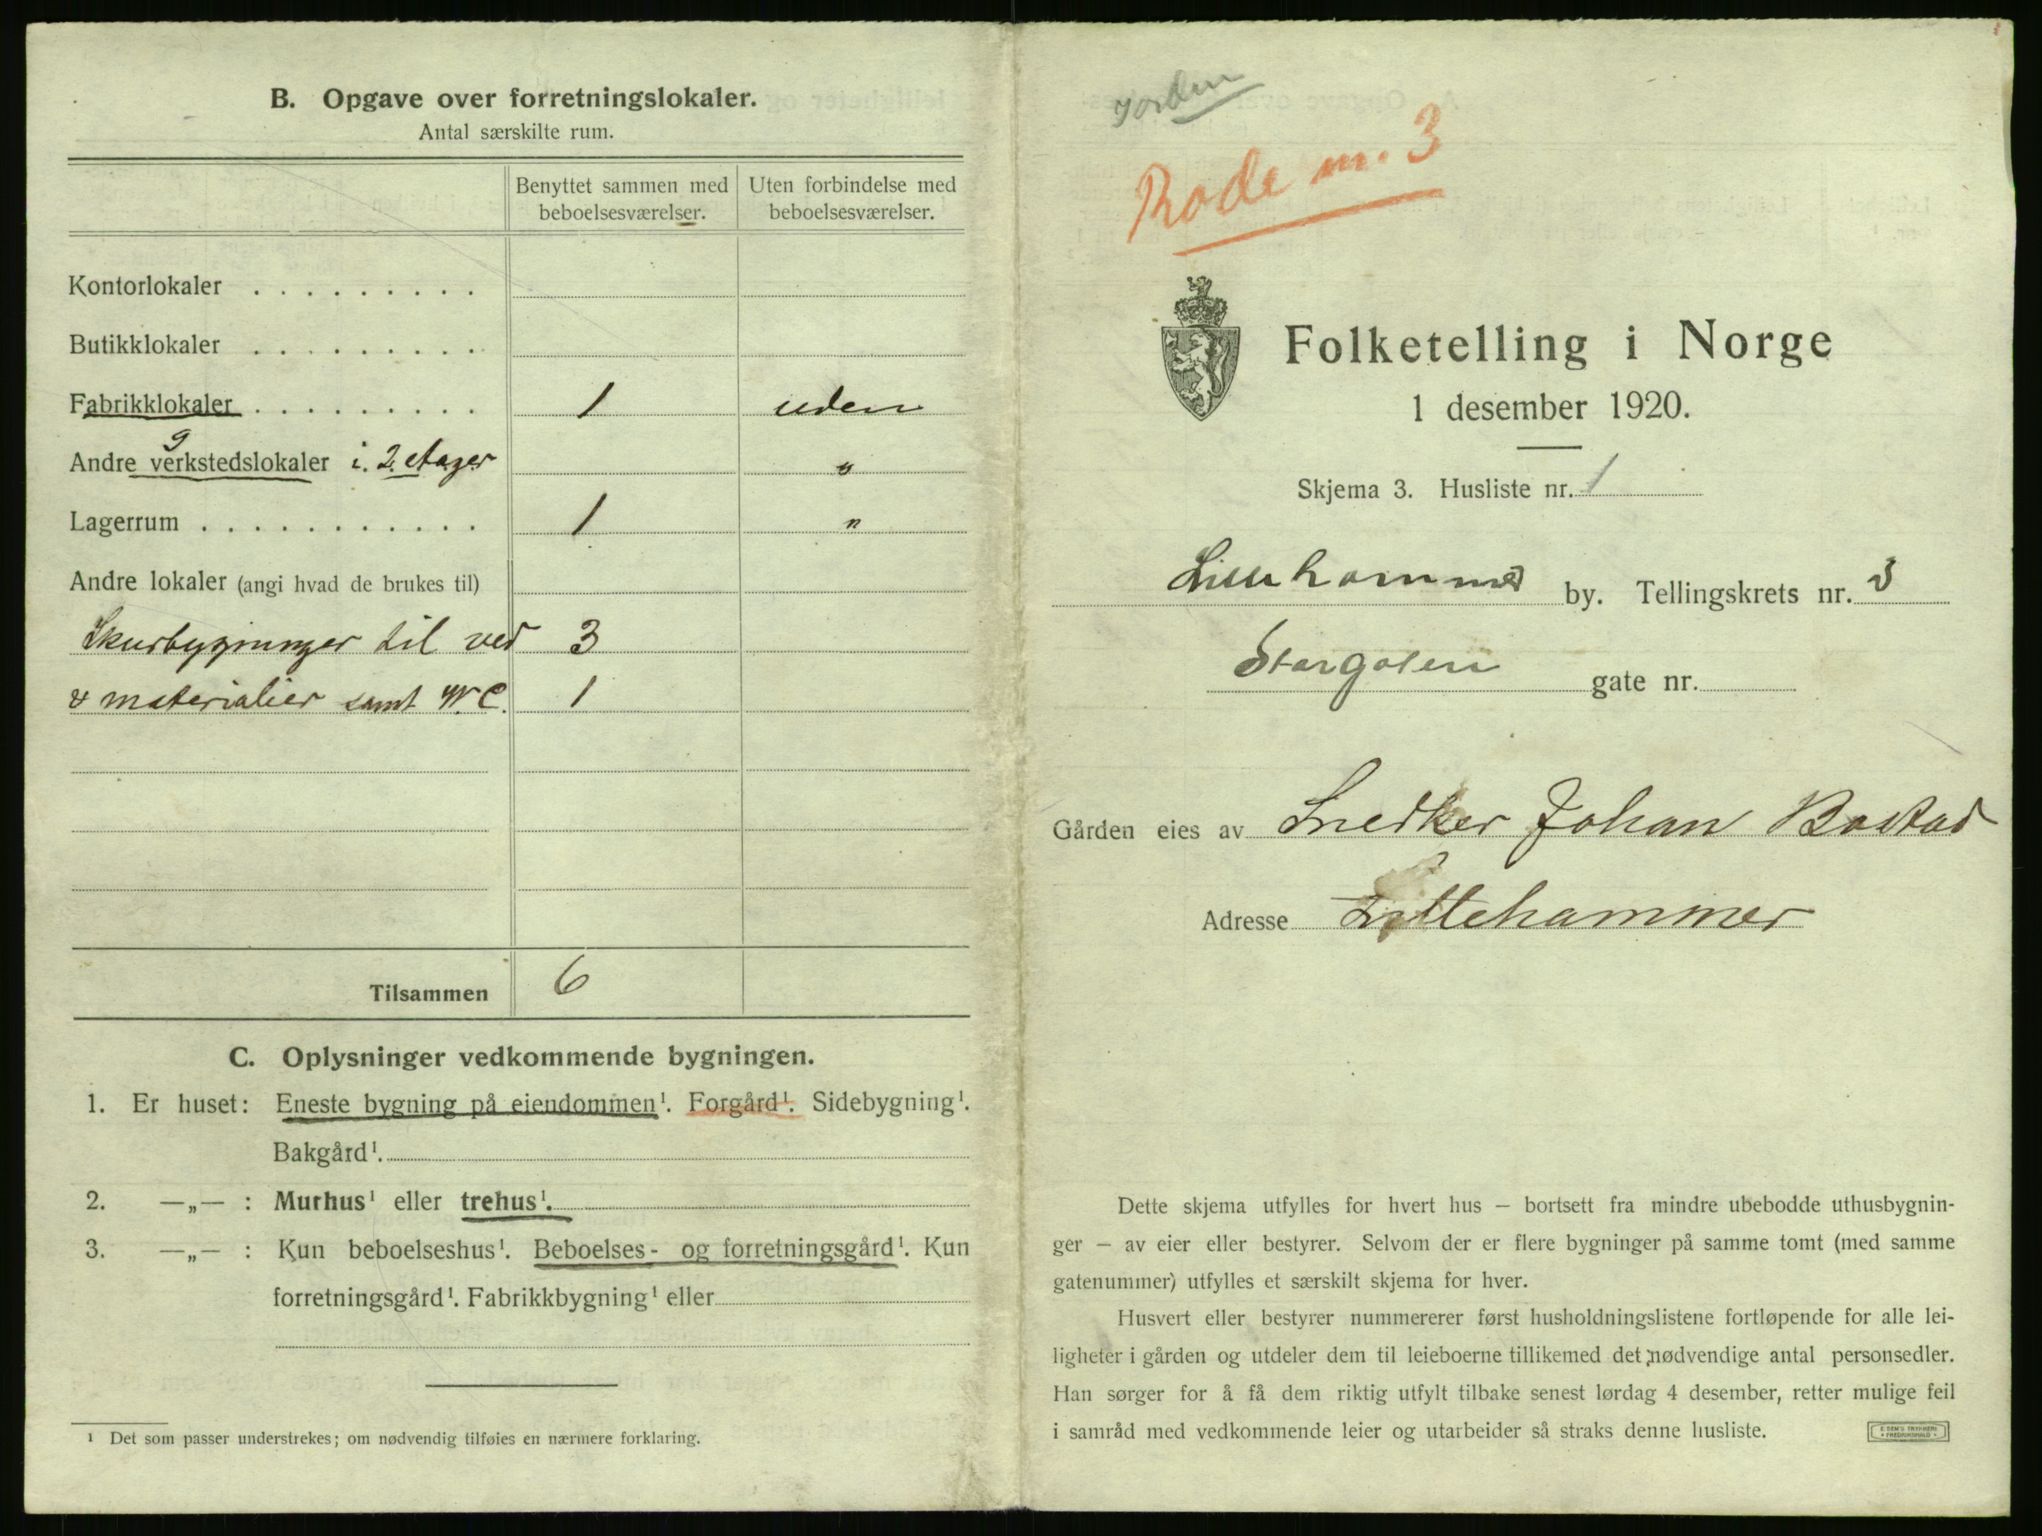 B. Opgave over forretningslokaler.
Antal særskilte rum.
Benyttet sammen med beboelsesværelser.
Uten forbindelse med beboelsesværelser.
Kontorlokaler . . . . . . . . .
Butikklokaler . . . . . . . . .
Fabrikklokaler . . . . . . . . . 1 uden
Andre verkstedslokaler i. 2. etager "
Lagerrum . . . . . . . . . . . 1 "
Andre lokaler (angi hvad de brukes til)
Skurbygninger til ved 3
& materialier samt W.C. 1
Tilsammen 6
C. Oplysninger vedkommende bygningen.
1. Er huset: Eneste bygning på eiendommen¹. Forgård¹. Sidebygning¹.
Bakgård¹.
2. —„— : Murhus¹ eller trehus¹.
3. —„— : Kun beboelseshus¹. Beboelses- og forretningsgård¹. Kun
forretningsgård¹. Fabrikkbygning¹ eller
¹ Det som passer understrekes; om nødvendig tilføies en nærmere forklaring.
Jorden
Rode nr. 3
Folketelling i Norge
1 desember 1920.
Skjema 3. Husliste nr. 1
Lillehammer by. Tellingskrets nr. 3
Storgaten gate nr.
Gården eies av Snedker Johan Bostad
Adresse Lillehammer
Dette skjema utfylles for hvert hus — bortsett fra mindre ubebodde uthusbygnin-
ger — av eier eller bestyrer. Selvom der er flere bygninger på samme tomt (med samme
gatenummer) utfylles et særskilt skjema for hver.
Husvert eller bestyrer nummererer først husholdningslistene fortløpende for alle lei-
ligheter i gården og utdeler dem til leieboerne tillikemed det nødvendige antal personsedler.
Han sørger for å få dem riktig utfylt tilbake senest lørdag 4 desember, retter mulige feil
i samråd med vedkommende leier og utarbeider så straks denne husliste.